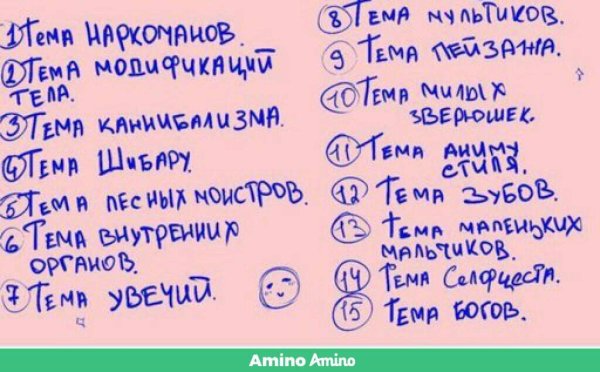 1 Тема наркоманов.
2 Тема модификаций
тела.
3 Тема каннибализма.
4 Тема Шибару.
5 Тема лесных монстров.
6 Тема внутренних
органов.
7 Тема увечий.
8 Тема мультиков.
9 Тема пейзажа.
10 Тема милых
зверюшек.
11 Тема аниму
стиля.
12 Тема зубов.
13 Тема маленьких
мальчиков.
14 Тема Селфцеста.
15 Тема богов.
Amino Amino